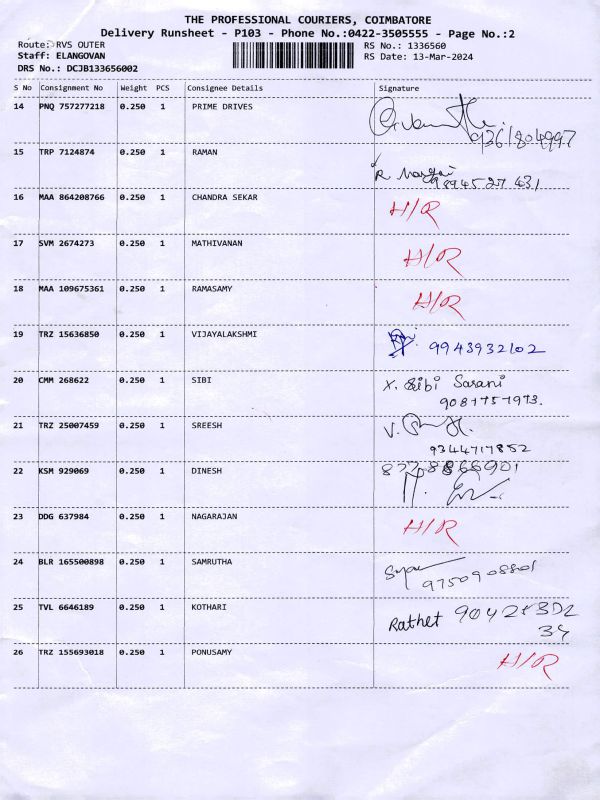 THE PROFESSIONAL COURIERS, COIMBATORE
Delivery Runsheet - P103 - Phone No.:0422-3505555 - Page No.:2
Route: RVS OUTER RS No.: 1336560
Staff: ELANGOVAN RS Date: 13-Mar-2024
DRS No.: DCJB133656002
S No Consignment No Weight PCS Consignee Details Signature
14 PNQ 757277218 0.250 1 PRIME DRIVES
9361804997
15 TRP 7124874 0.250 1 RAMAN R
9894527431
16 MAA 864208766 0.250 1 CHANDRA SEKAR H/R
17 SVM 2674273 0.250 1 MATHIVANAN H/R
18 MAA 109675361 0.250 1 RAMASAMY H/R
19 TRZ 15636850 0.250 1 VIJAYALAKSHMI 9943932102
20 CMM 268622 0.250 1 SIBI X. Sibi Sarani
9087757973.
21 TRZ 25007459 0.250 1 SREESH V.
9344717852
22 KSM 929069 0.250 1 DINESH 8778866901
23 DDG 637984 0.250 1 NAGARAJAN H/R
24 BLR 165500898 0.250 1 SAMRUTHA
9750908801
25 TVL 6646189 0.250 1 KOTHARI Rathet
34
26 TRZ 155693018 0.250 1 PONUSAMY H/R